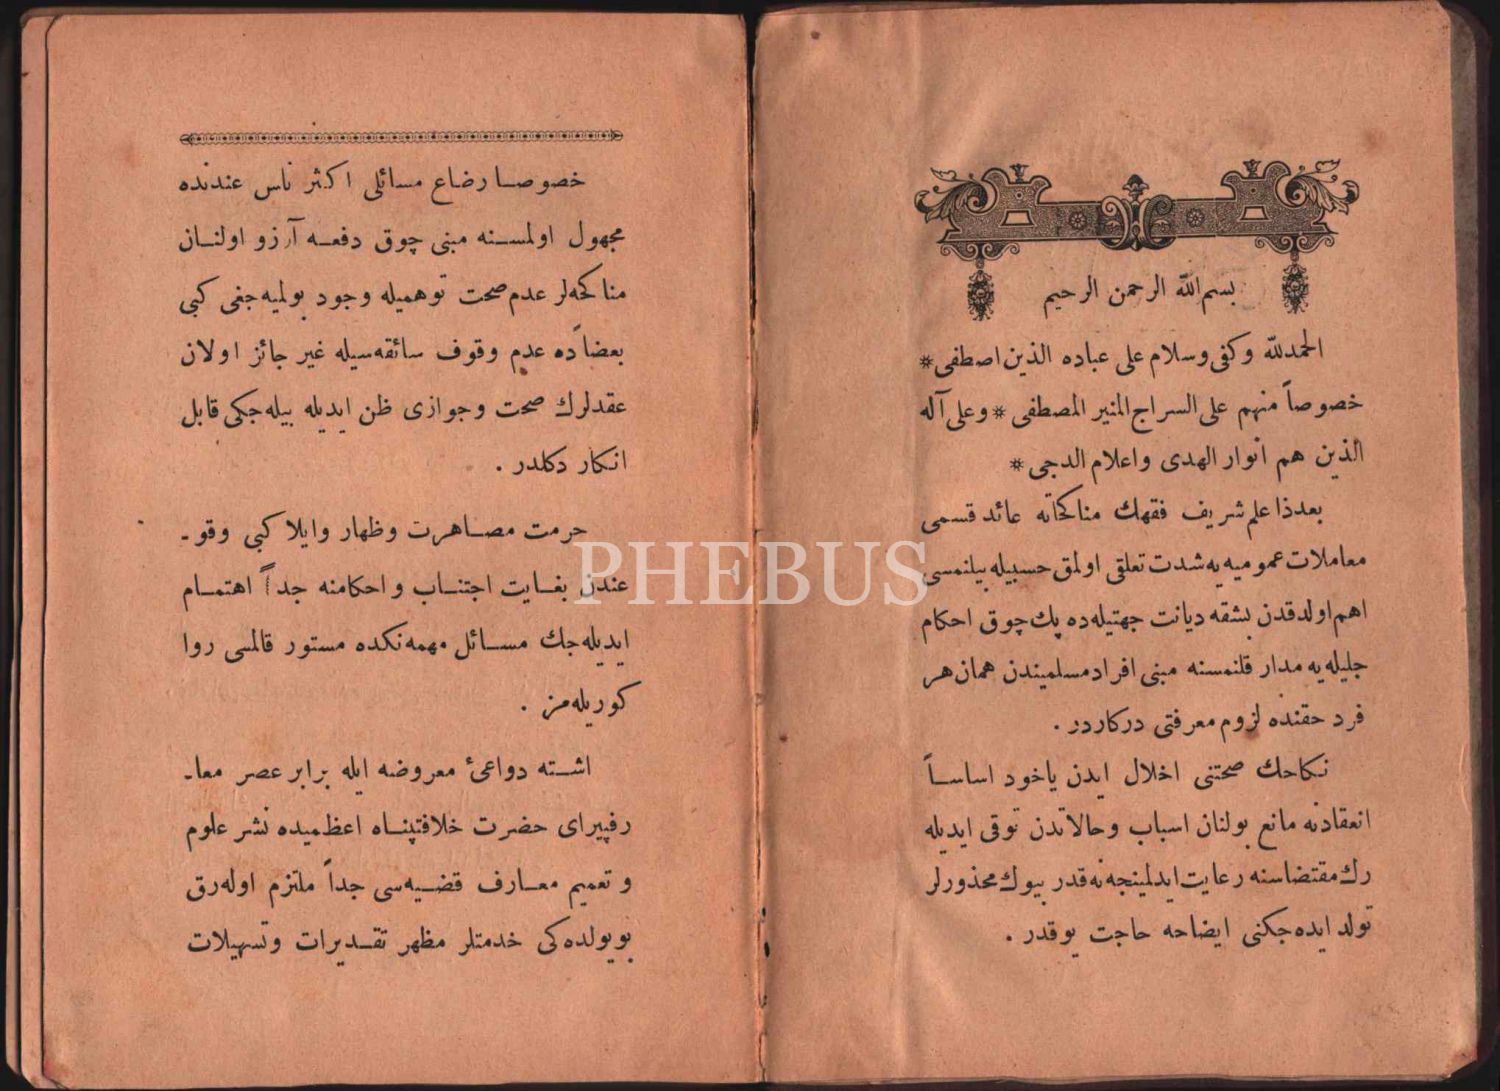 بسم الله الرحمن الرحيم
الحمدلله وكفى وسلام على عباده الذين اصطفى *
خصوصاً منهم على السراج المنير المصطفى * وعلى آله
الذين هم انوار الهدى واعلام الدجى *
بعدذا علم شريف فقهك مناكحاته عائد قسمى
معاملات عموميه‌يه شدت تعلقى اولمق حسبيله بيلنمسى
اهم اولدقدن بشقه ديانت جهتيله‌ده پك چوق احكام
جليله‌يه مدار قلنمسنه مبنى افراد مسلميندن همان هر
فرد حقنده لزوم معرفتى دركاردر .
نكاحك صحتنى اخلال ايدن ياخود اساساً
انعقادنه مانع بولنان اسباب وحالاتدن توقى ايديله
رك مقتضاسنه رعايت ايدلمينجه نه‌قدر بيوك محذورلر
تولد ايده‌جكنى ايضاحه حاجت يوقدر .
خصوصا رضاع مسائلى اكثر ناس عندنده
مجهول اولمسنه مبنى چوق دفعه آرزو اولنان
مناكحه‌لر عدم صحت توهميله وجود بولميه‌جغى كبى
بعضاًده عدم وقوف سائقه‌سيله غير جائز اولان
عقدلرك صحت وجوازى ظن ايديله بيله‌جكى قابل
انكار دكلدر .
حرمت مصاهرت وظهار وايلا كبى وقو-
عندن بغايت اجتناب واحكامنه جداً اهتمام
ايديله‌جك مسائل مهمه‌نكده مستور قالمسى روا
كوريله‌مز .
اشته دواعئ معروضه ايله برابر عصر معا-
رفپيراى حضرت خلافتپناه اعظميده نشر علوم
وتعميم معارف قضيه‌سى جداً ملتزم اوله‌رق
بويولده‌كى خدمتلر مظهر تقديرات وتسهيلات
PHEBUS